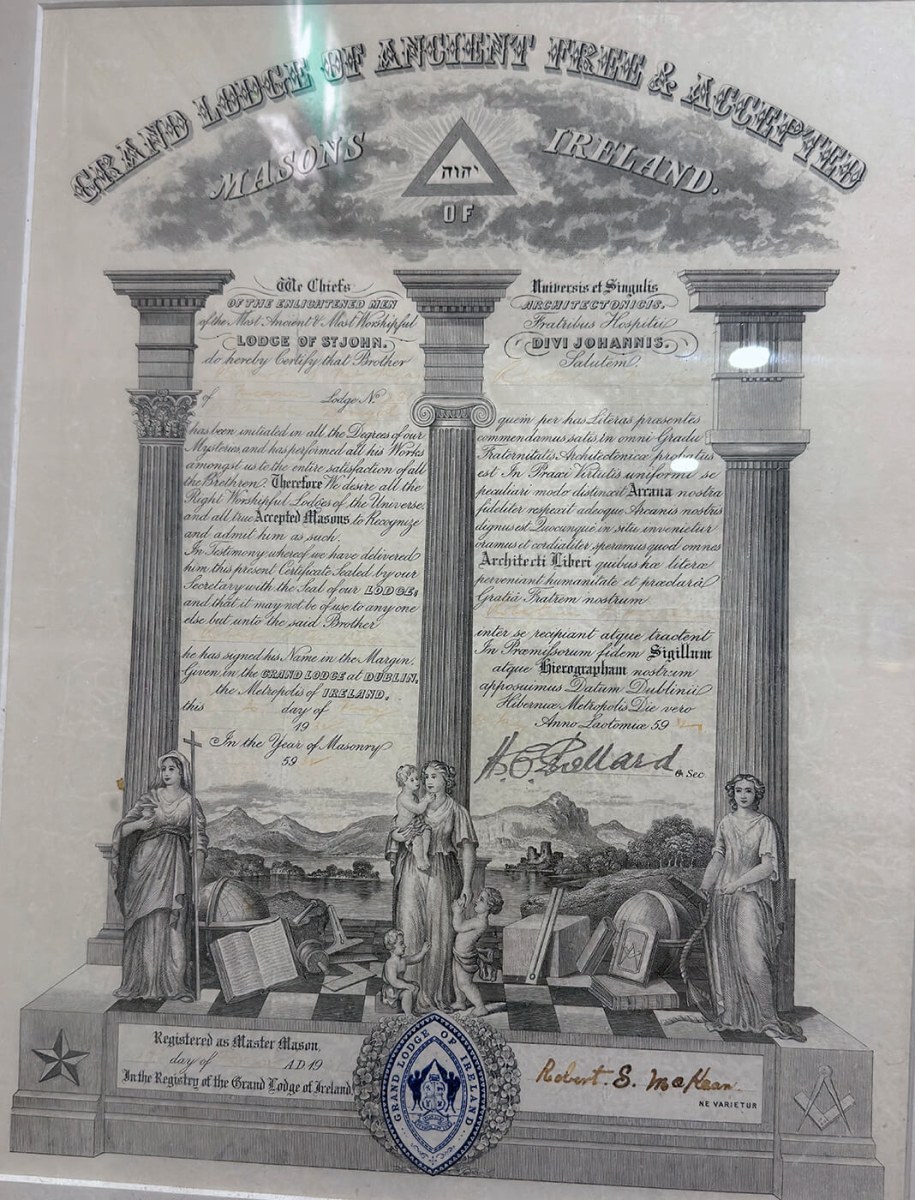 GRAND LODGE OF ANCIENT FREE & ACCEPTED
MASONS
OF
IRELAND.
יהוה
We Chiefs
OF THE ENLIGHTENED MEN
of the Most Ancient & Most Worshipful
LODGE OF ST JOHN.
do hereby Certify that Brother
of Lodge No.
has been initiated in all the Degrees of our
Mysteries, and has performed all his Works
amongst us to the entire satisfaction of all
the Brethren. Therefore We desire all the
Right Worshipful Lodges of the Universe,
and all true Accepted Masons to Recognize
and admit him as such.
In Testimony whereof we have delivered
him this present Certificate Sealed by our
Secretary with the Seal of our LODGE;
and that it may not be of use to any one
else but unto the said Brother
he has signed his Name in the Margin.
Given in the GRAND LODGE at DUBLIN,
the Metropolis of IRELAND,
this day of
19
In the Year of Masonry
59
Universis et Singulis
ARCHITECTONICIS.
Fratribus Hospitii
DIVI JOHANNIS.
Salutem.
quem per has Literas præsentes
commendamus satis in omni Gradu
Fraternitatis Architectonicæ probatus
est In Praxi Virtutis uniformi se
peculiari modo distinxit Arcana nostra
fideliter respexit adeoque Arcanis nostris
dignus est Quocunque in situ invenietur
oramus et cordialiter speramus quod omnes
Architecti Liberi quibus hæ literæ
perveniant humanitate et præclarâ
Gratiâ Fratrem nostrum
inter se recipiant atque tractent
In Præmissorum fidem Sigillum
atque Hierographam nostram
apposuimus Datum Dublinii
Hiberniæ Metropolis Die vero
Anno Laotomiæ 59
G. Sec
Registered as Master Mason
day of A.D. 19
In the Registry of the Grand Lodge of Ireland
GRAND LODGE OF IRELAND
Robert. S. McKean
NE VARIETUR